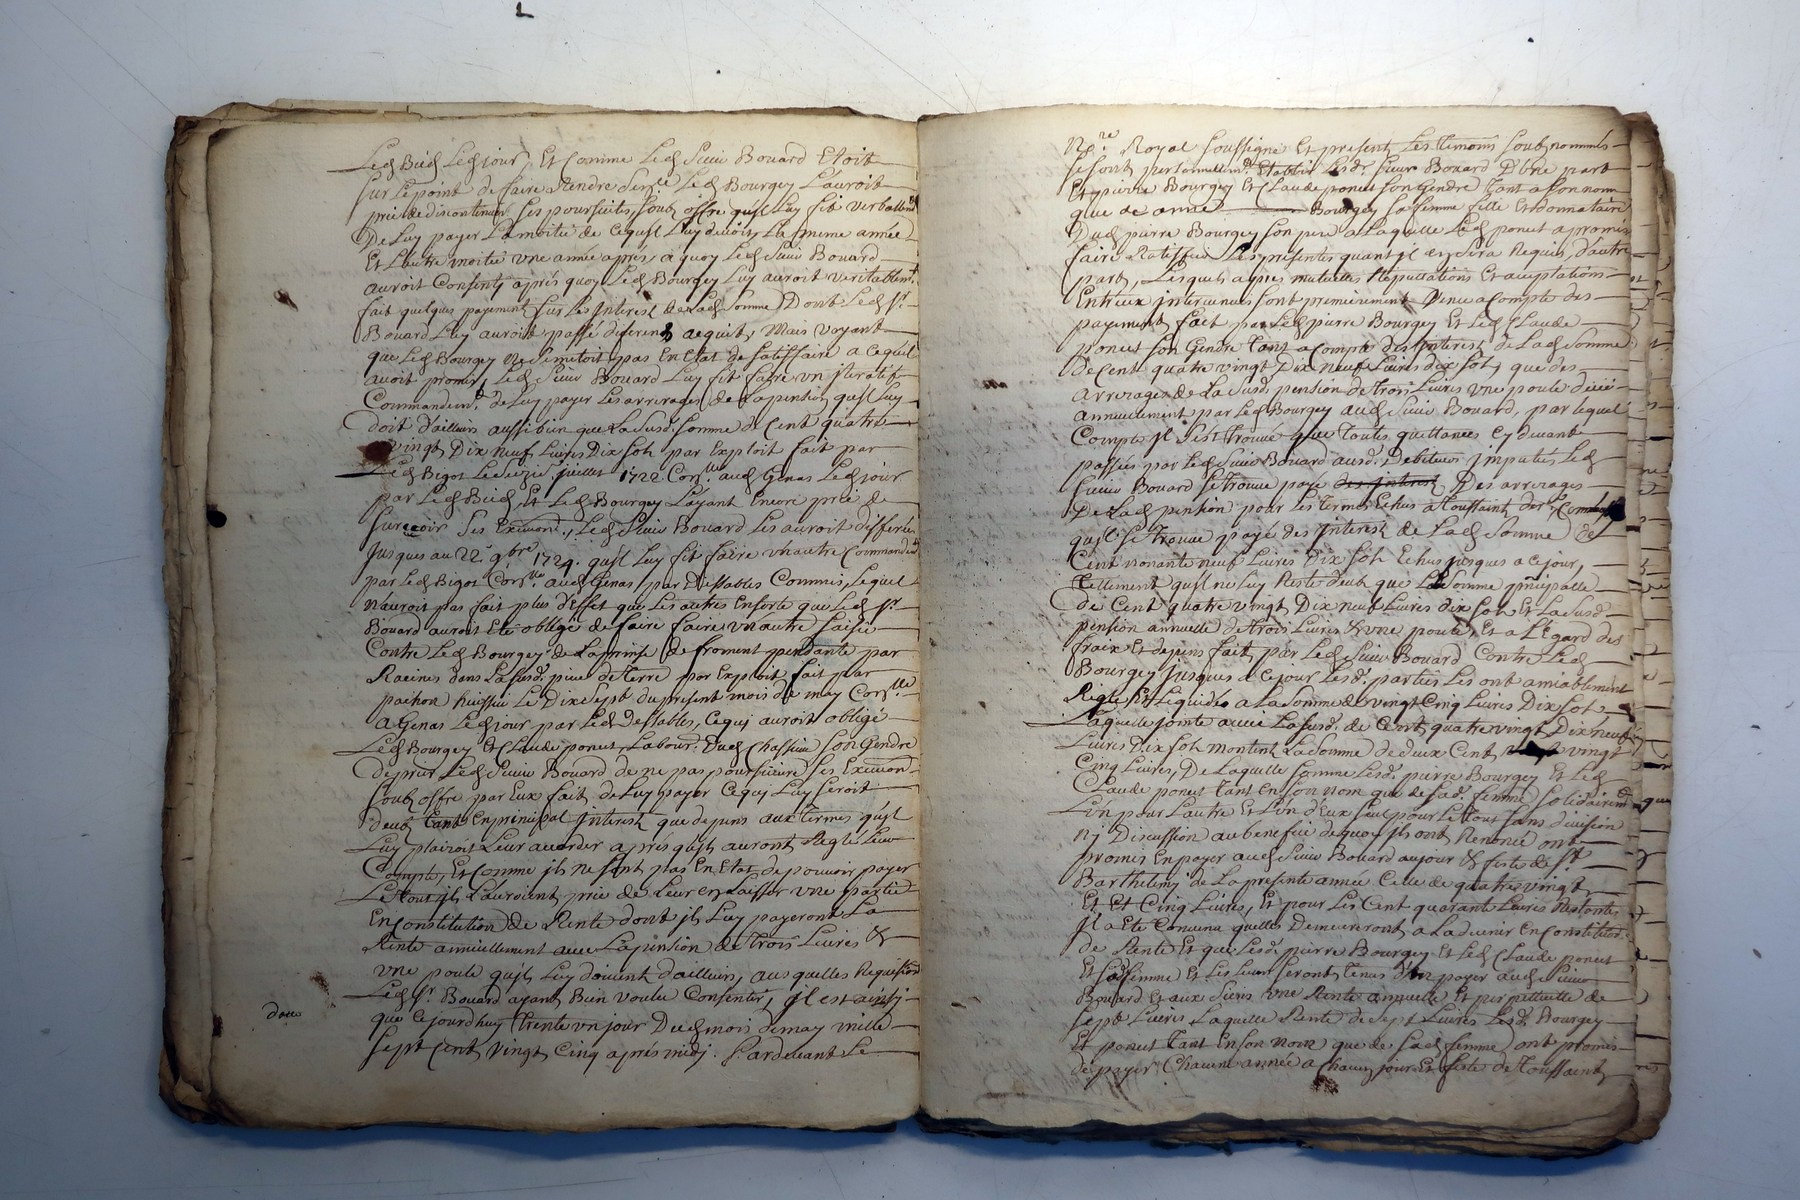 Led Bied Led jour, Et Comme Led Sieur Bouard Etoit
sur Le point de faire Rendre Sen.ce Led Bourgey L'auroit
prié de discontinuer Ses poursuites, soub offre qu'il Luy fit verballem.t
De Luy payer La moitié de Ce qu'il Luy devoit La meme année
Et L'autre moitié une année aprés, a quoy Led Sieur Bouard
auroit Consenty aprés quoy Led Bourgey Luy auroit veritablem.t
fait quelques payement sur Les Interest de Lad Somme Dont Led S.r
Bouard Luy auroit passé diferens acquits, Mais voyant
que Led Bourgey Ne Se mettoit pas En Etat de satisfaire a Ce qu'il
avoit promis, Led Sieur Bouard Luy fit faire un Iteratif
Commandem.t de Luy payer Les arrerages de La pension qu'il Luy
doit d'ailleurs aussi bien que La Susd. Somme de Cent quatre
vingt Dix Neuf Livres Dix Sols par Exploit fait par
Led Bigot Le Seize juillet 1722 Con.lle aud Genas Led jour
par Led Bied, Et Led Bourgey L'ayant Encore prié de
surceoir Ses Execuons., Led Sieur Bouard Les auroit differées
Jusques au 22.e 9bre 1724. qu'il Luy fit faire un autre Commandem.t
par Led Bigot Con.lle aud Genas par Destables Commis, Lequel
n'auroit pas fait plus d'Effet que Les autres En sorte que Led S.r
Bouard auroit Eté obligé de faire faire un autre Saisie
Contre Led Bourgey de La prinse de froment pendante par
Racines dans La susd. piece de terre par Exploit fait par
pachon huissier Le Dix Sept du present mois de may Con.lle
a Genas Led jour par Led Destables, Ce qui auroit obligé
Led Bourgey Et Claude poncet Labour. Dud Chassieu son Gendre
de prier Led Sieur Bouard de ne pas poursuivre Ses Execuon.
soub offre par Eux fait de Luy payer Ce qui Luy Seroit
deub tant En principal Interest que depens aux termes qu'il
Luy plairoit Leur accorder aprés qu'ils auront Reglé Leur
Compte, Et Comme ils ne sont pas En Etat de pouvoir payer
Le tout ils L'auroient prié de Leur En Laisser une partie
En Constitution de Rente dont ils Luy payeront La
Rente annuellement avec La pension de trois Livres &
une poule qu'ils Luy doivent d'ailleurs, aus quelles Requisitions
Led S.r Bouard ayant Bien voulu Consentir, il est ainsy
que Cejourd'huy trente un jour Dud mois de may mille
Sept Cent vingt Cinq aprés midy. Pardevant Le
N.re Royal soussigné Et present Les temoins soub nommés
se sont personnellem.t Etablis Lesd. Sieur Bouard D'une part
Et pierre Bourgey Et Claude poncet son Gendre tant a son nom
que de anne Bourgey sa femme fille Et Donnataire
Dud pierre Bourgey son pere a Laquelle Led poncet a promis
faire Ratiffier Les presentes quant il En Sera Requis, D'autre
part, Lesquels aprés mutuelles stipullations Et acceptations
Entreux Intervenues sont premierement Venus a Compte des
payement fait par Led pierre Bourgey Et Led Claude
poncet son Gendre tant a Compte des Interest de Lad Somme
de Cent quatre vingt Dix Neuf Livres dix sols, que des
arrerages de La Susd. pension de trois Livres une poule deüe
annuellement par Led Bourgey aud Sieur Bouard, par lequel
Compte Il S'est trouvé que toutes quittances Cy devant
passées par Led Sieur Bouard ausd. Debiteurs imputés Led
Sieur Bouard se trouve payé des Interest Des arrerages
De Lad pension pour Les termes Echus a toussaint der.
qu'il se trouve payé des Interest de Lad Somme de
Cent nonante neuf Livres Dix sols Echus jusques a Cejour,
tellement qu'il ne Luy Reste deub que La Somme principalle
de Cent quatre vingt Dix neuf Livres dix sols Et La Susd.
pension annuelle de trois Livres & une poule, Et a L'Egard des
fraix Et depens fait, par Led Sieur Bouard Contre Led
Bourgey jusques a Cejour Lesd. parties Les ont amiablement
Reglés Et Liquidés a La Somme de vingt Cinq Livres Dix Sols
Laquelle jointe avec La susd. de Cent quatre vingt Dix neuf
Livres Dix sols montent La Somme de deux Cent vingt
Cinq Livres, De Laquelle Somme Lesd. pierre Bourgey Et Led
Claude poncet tant En son nom que de sad. femme solidairem.t
L'un pour L'autre Et L'un d'Eux seul pour Le tout sans division
ny Discussion au benefice de quoy ils ont Renoncé ont
promis En payer aud Sieur Bouard au jour & feste de S.t
Barthelemy de La presente année Celle de quatre vingt
Et Cinq Livres, Et pour Les Cent quarante Livres Restantes
Il a Eté Convenu quelles Demeureront a L'advenir En Constitution
de Rente Et que Lesd. pierre Bourgey Et Led Claude poncet
Et sa femme Et Les Leurs Seront tenus d'En payer aud Sieur
Bouard Et aux Siens une Rente annuelle Et perpettuelle de
sept Livres Laquelle Rente de Sept Livres Lesd. Bourgey
Et poncet tant En son nom que de Sad femme ont promis
de payer Chacune année a Chacun jour Et feste de Toussaint